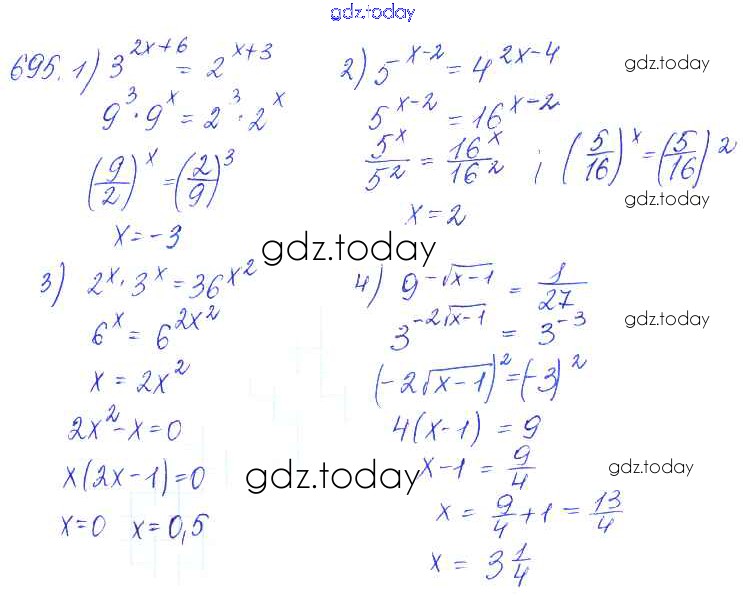 gdz.today
695. 1) 3^{2x+6} = 2^{x+3}
9^3 · 9^x = 2^3 · 2^x
(9/2)^x = (2/9)^3
x = -3
2) 5^{x-2} = 4^{2x-4}
5^{x-2} = 16^{x-2}
5^x/5^2 = 16^x/16^2 ; (5/16)^x = (5/16)^2
x = 2
gdz.today
gdz.today
gdz.today
3) 2^x · 3^x = 36^{x^2}
6^x = 6^{2x^2}
x = 2x^2
2x^2 - x = 0
x(2x-1) = 0
x = 0 x = 0,5
4) 9^{-√(x-1)} = 1/27
3^{-2√(x-1)} = 3^{-3}
(-2√(x-1))^2 = (-3)^2
4(x-1) = 9
x-1 = 9/4
x = 9/4 + 1 = 13/4
x = 3 1/4
gdz.today
gdz.today
gdz.today